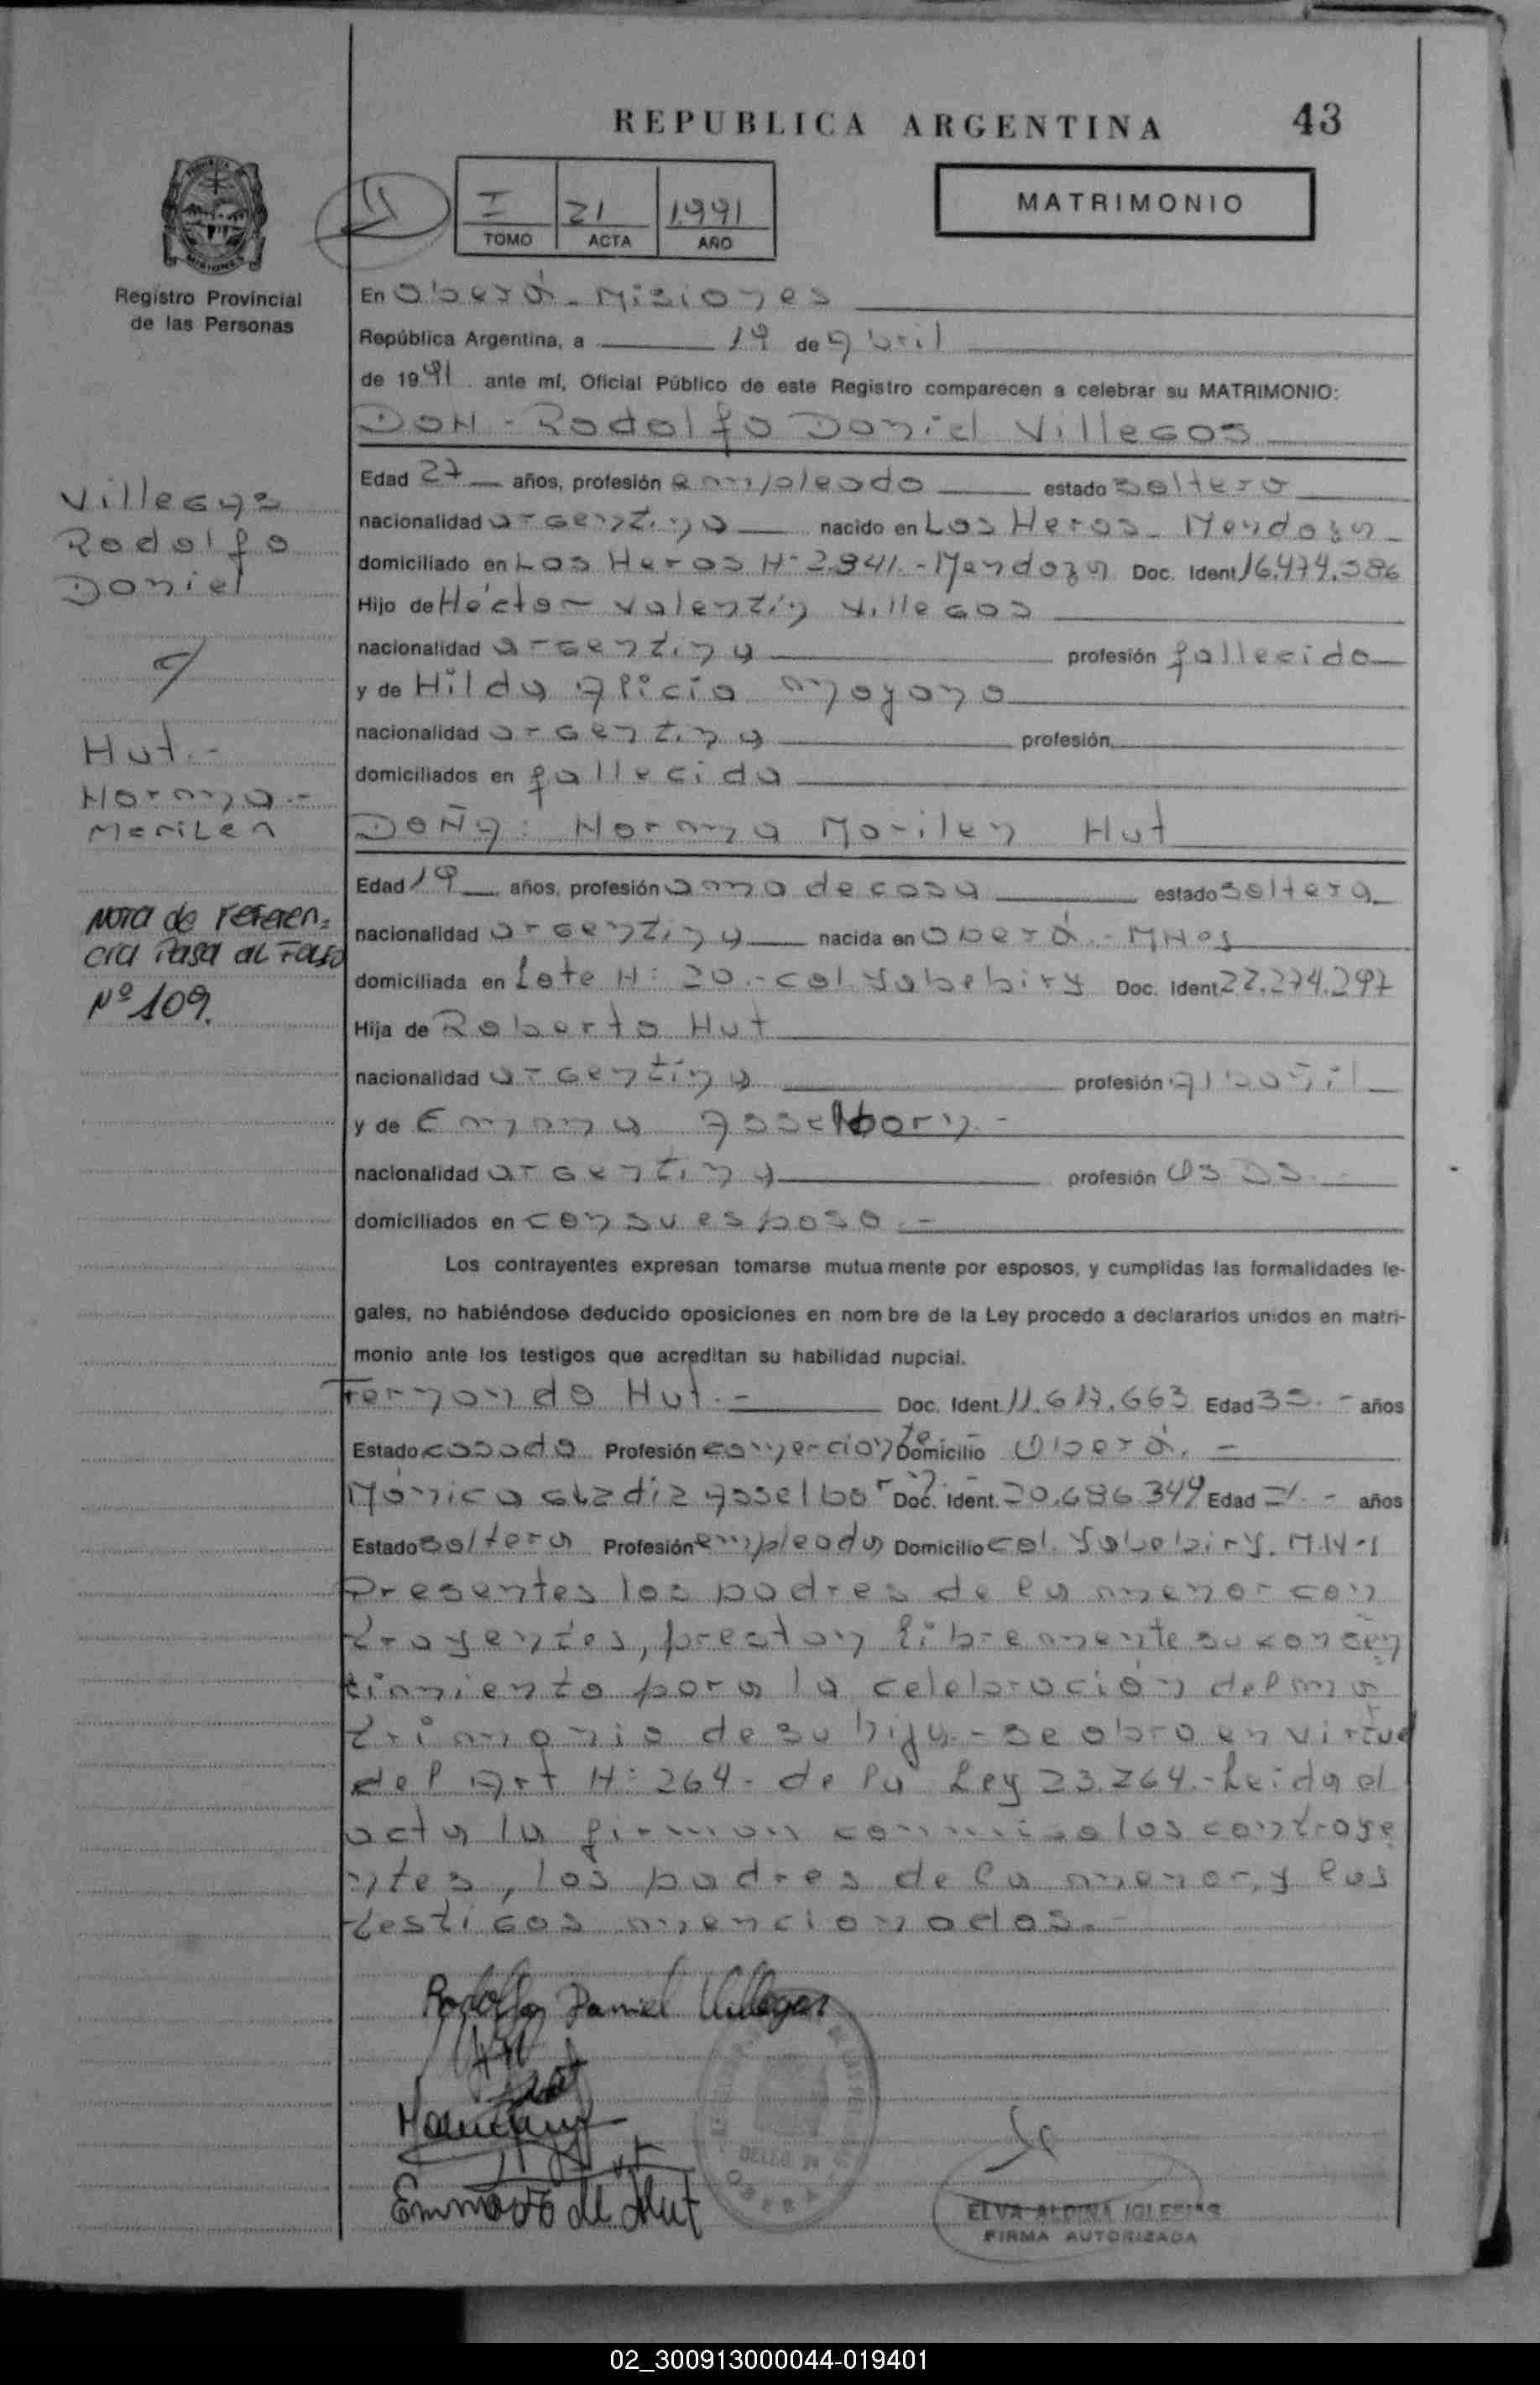 REPUBLICA ARGENTINA 43
I 21 1991
TOMO ACTA AÑO
MATRIMONIO
MISIONES
Registro Provincial
de las Personas
En Oberá - Misiones
República Argentina, a 19 de Abril
de 1991 ante mí, Oficial Público de este Registro comparecen a celebrar su MATRIMONIO:
DON - Rodolfo Daniel Villegas
Edad 27 años, profesión empleado estado soltero
nacionalidad argentina nacido en Las Heras - Mendoza -
domiciliado en Las Heras N- 2.941.- Mendoza Doc. Ident 16.474.386
Hijo de Héctor Valentín Villegas
nacionalidad argentina profesión fallecido
y de Hilda Alicia Moyano
nacionalidad argentina profesión
domiciliados en fallecida
DOÑA: Norma Marilen Hut
Edad 19 años, profesión ama de casa estado soltera
nacionalidad argentina nacida en Oberá.- MNes
domiciliada en Lote N: 20.- col. Yabebiry Doc. Ident 22.274.297
Hija de Roberto Hut
nacionalidad argentina profesión Albañil
y de Emma Asselborn.-
nacionalidad argentina profesión QS DS.-
domiciliados en con su esposo.-
Los contrayentes expresan tomarse mutuamente por esposos, y cumplidas las formalidades le-
gales, no habiéndose deducido oposiciones en nombre de la Ley procedo a declararlos unidos en matri-
monio ante los testigos que acreditan su habilidad nupcial.
Fernando Hut.- Doc. Ident. 11.617.663 Edad 35.- años
Estado casado Profesión comerciante Domicilio Oberá.-
Mónica Gladiz Asselborn Doc. Ident. 20.686.349 Edad 21.- años
Estado soltera Profesión empleada Domicilio col. Yabebiry. M.N-s
Presentes los padres de la menor con
trayentes, prestan libremente su consen
timiento para la celebración del ma
trimonio de su hija.- Se obra en virtud
del Art N: 264- de la Ley 23.264.- Leida el
acta la firman conmigo los contraye
ntes, los padres de la menor, y los
testigos mencionados.-
Villegas
Rodolfo
Daniel
c/
Hut.-
Norma.-
Marilen
Nota de referen=
cia Pasa al Folio
Nº 109.
Rodolfo Daniel Villegas
Emma de Hut
OBERA
ELVA ALDINA IGLESIAS
FIRMA AUTORIZADA
02_300913000044-019401